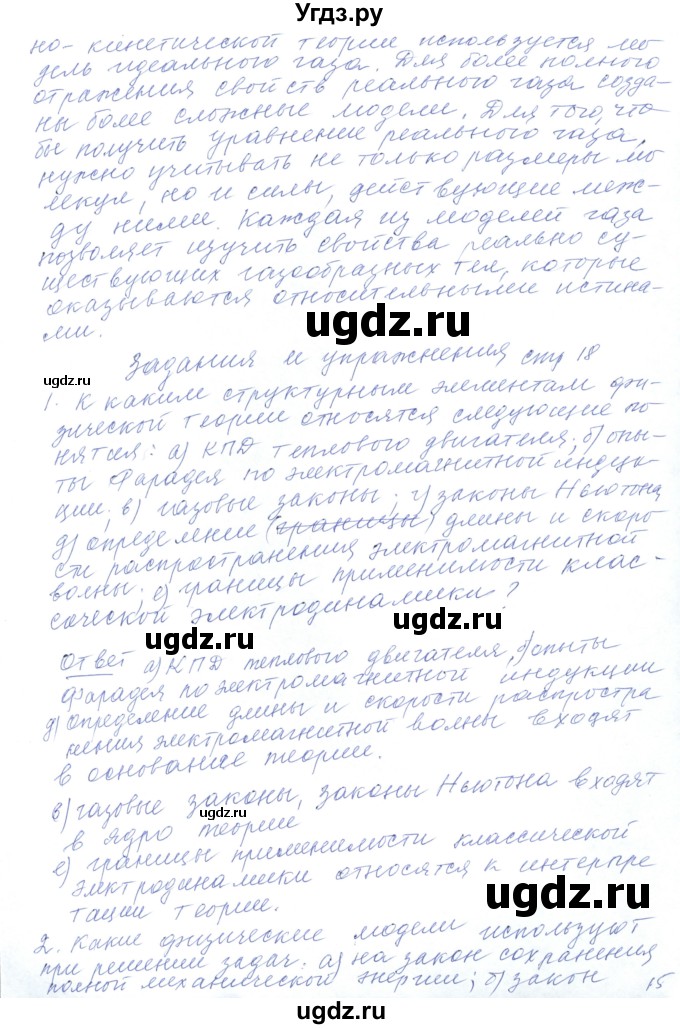 Угдз.ру
но-кинетической теории используется мо-
дель идеального газа. Для более полного
отражения свойств реального газа созда-
ны более сложные модели. Для того, что-
бы получить уравнение реального газа,
нужно учитывать не только размеры мо-
лекул, но и силы, действующие меж-
ду ними. Каждая из моделей газа
позволяет изучить свойства реально су-
ществующих газообразных тел, которые
оказываются относительными истина-
ми.
ugdz.ru
Задания и упражнения стр 18
ugdz.ru
1. К каким структурным элементам фи-
зической теории относятся следующие по-
нятия: а) КПД теплового двигателя; б) опы-
ты Фарадея по электромагнитной индук-
ции; в) газовые законы; г) законы Ньютона
д) определение (границы) длины и скоро-
сти распространения электромагнитной
волны; е) границы применимости клас-
сической электродинамики?
ugdz.ru
ugdz.ru
Ответ а) КПД теплового двигателя, б) опыты
Фарадея по электромагнитной индукции
д) определение длины и скорости распростра
нения электромагнитной волны входят
в основание теории.
ugdz.ru
в) газовые законы, законы Ньютона входят
в ядро теории
ugdz.ru
е) границы применимости классической
электродинамики относятся к интерпре
тации теории.
ugdz.ru
2. Какие физические модели используют
при решении задач: а) на закон сохранения
полной механической энергии; б) закон
15
ugdz.ru